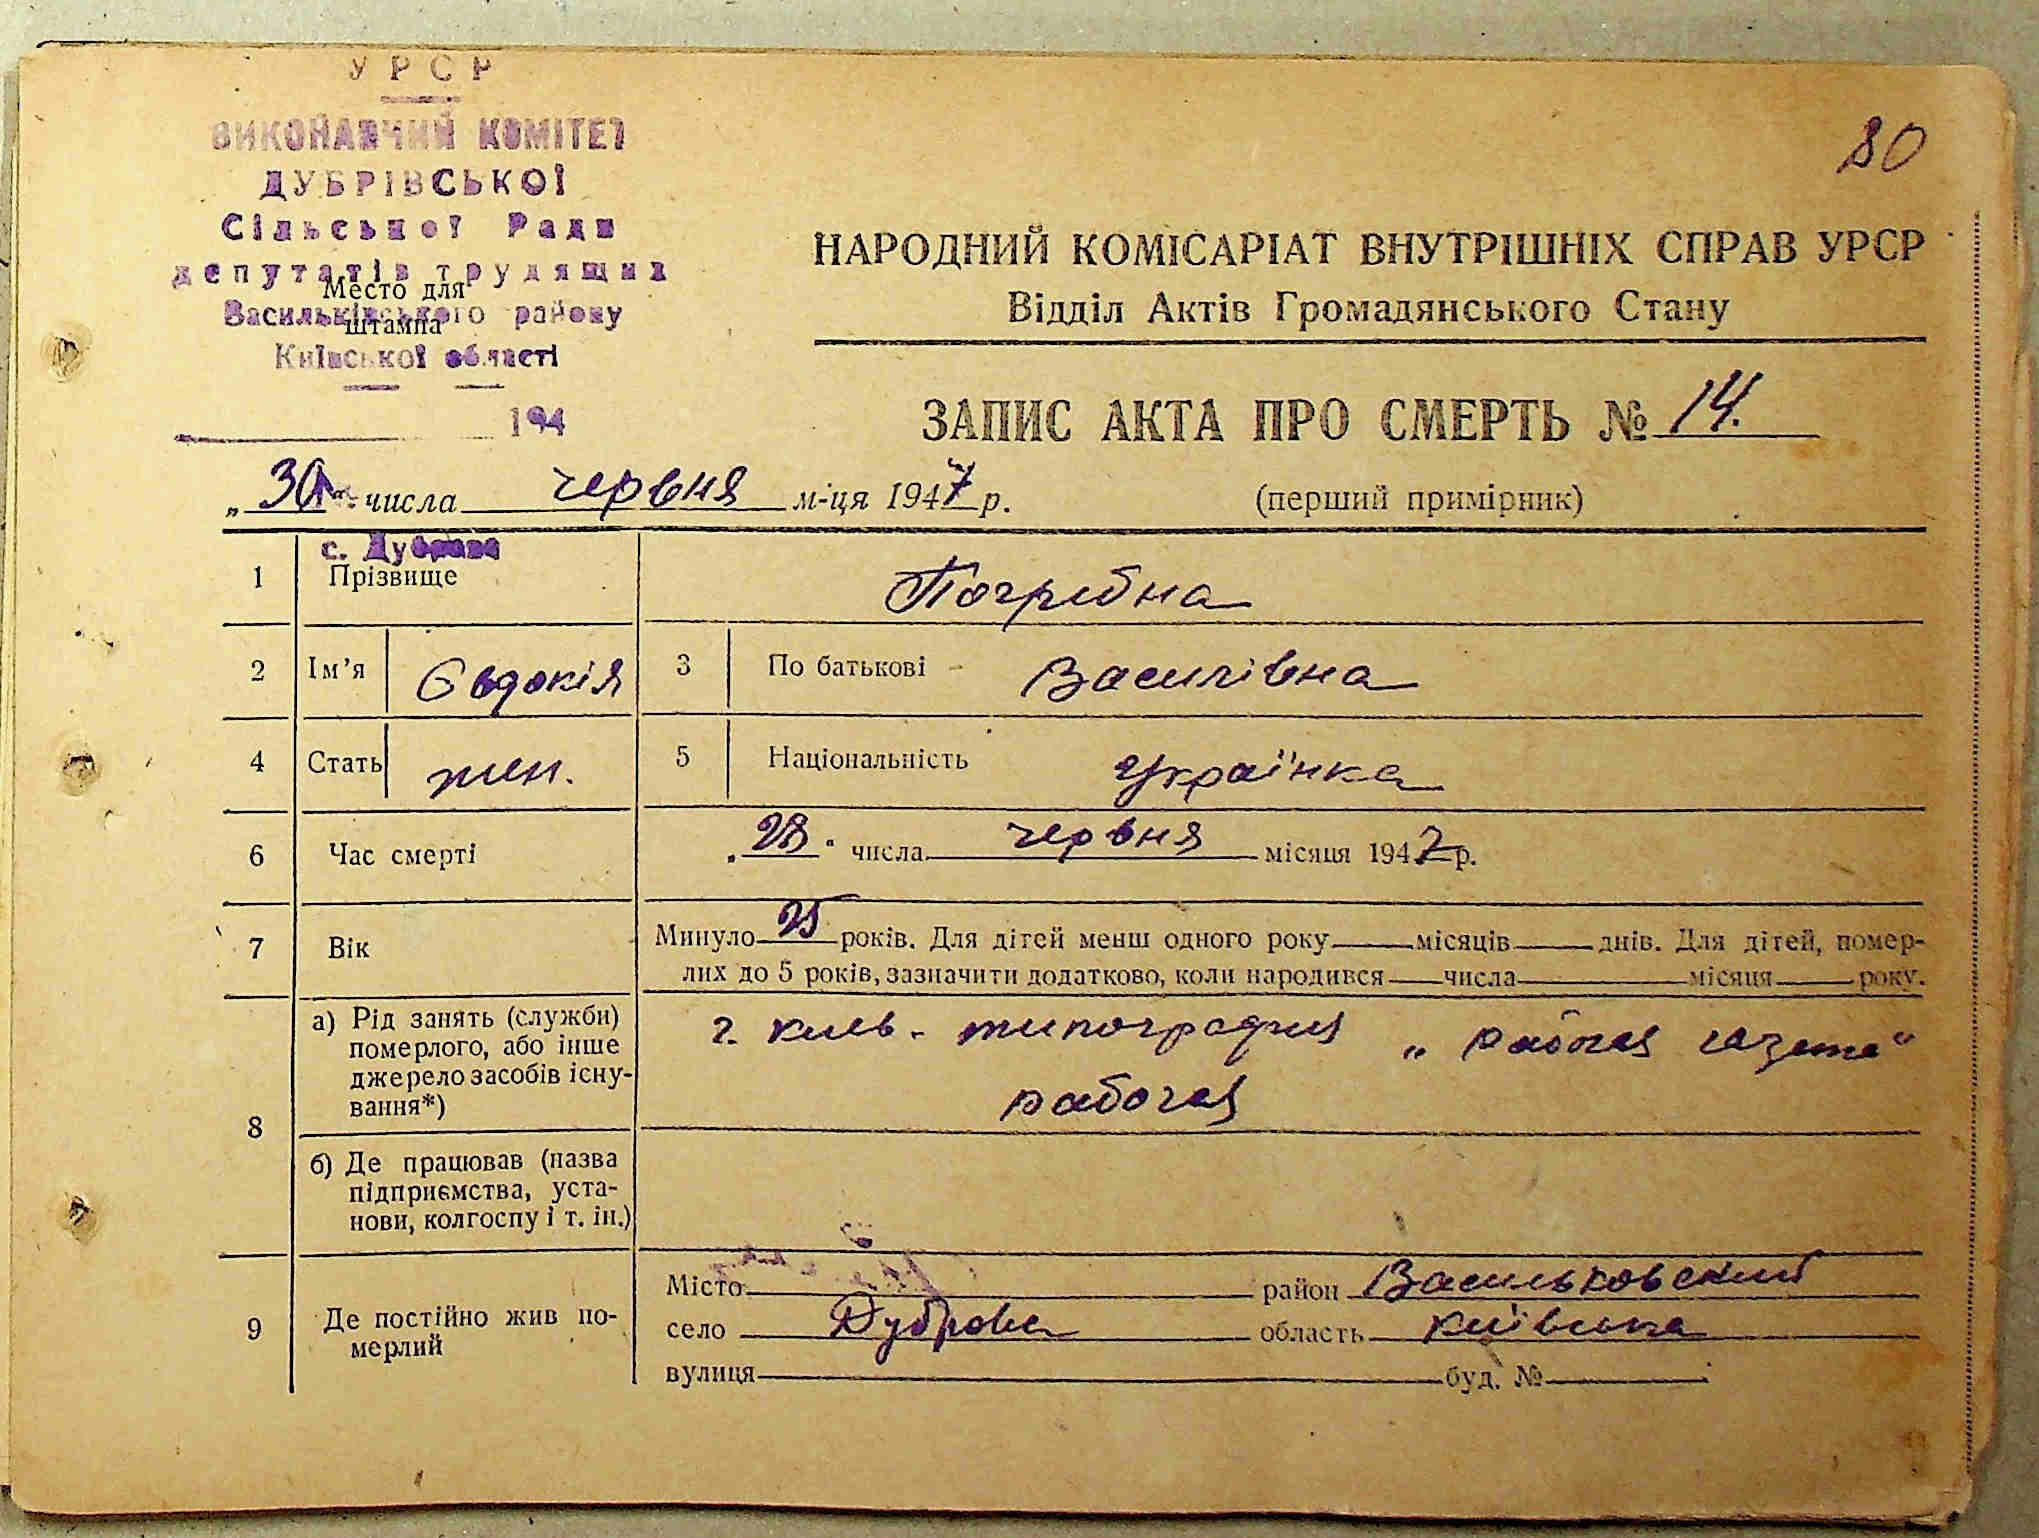 УРСР
ВИКОНАВЧИЙ КОМІТЕТ
ДУБРІВСЬКОЇ
Сільської Ради
депутатів трудящих
Место для
Васильківського району
штампа
Київської області
194
80
НАРОДНИЙ КОМІСАРІАТ ВНУТРІШНІХ СПРАВ УРСР
Відділ Актів Громадянського Стану
ЗАПИС АКТА ПРО СМЕРТЬ № 14.
„30“ числа червня м-ця 1947 р.
(перший примірник)
с. Дуброва
1 Прізвище Погребна
2 Ім’я Євдокія 3 По батькові Василівна
4 Стать жен. 5 Національність українка
6 Час смерті „28“ числа червня місяця 1947 р.
7 Вік Минуло 25 років. Для дітей менш одного року місяців днів. Для дітей, помер-
лих до 5 років, зазначити додатково, коли народився числа місяця року.
8 а) Рід занять (служби) померлого, або інше джерело засобів існу-вання*)
г. Киев. типография „рабочая газета“
рабочая
б) Де працював (назва
підприємства, уста-
нови, колгоспу і т. ін.)
9 Де постійно жив по-
мерлий
Місто район Васильковский
село Дуброва область київська
вулиця буд. №